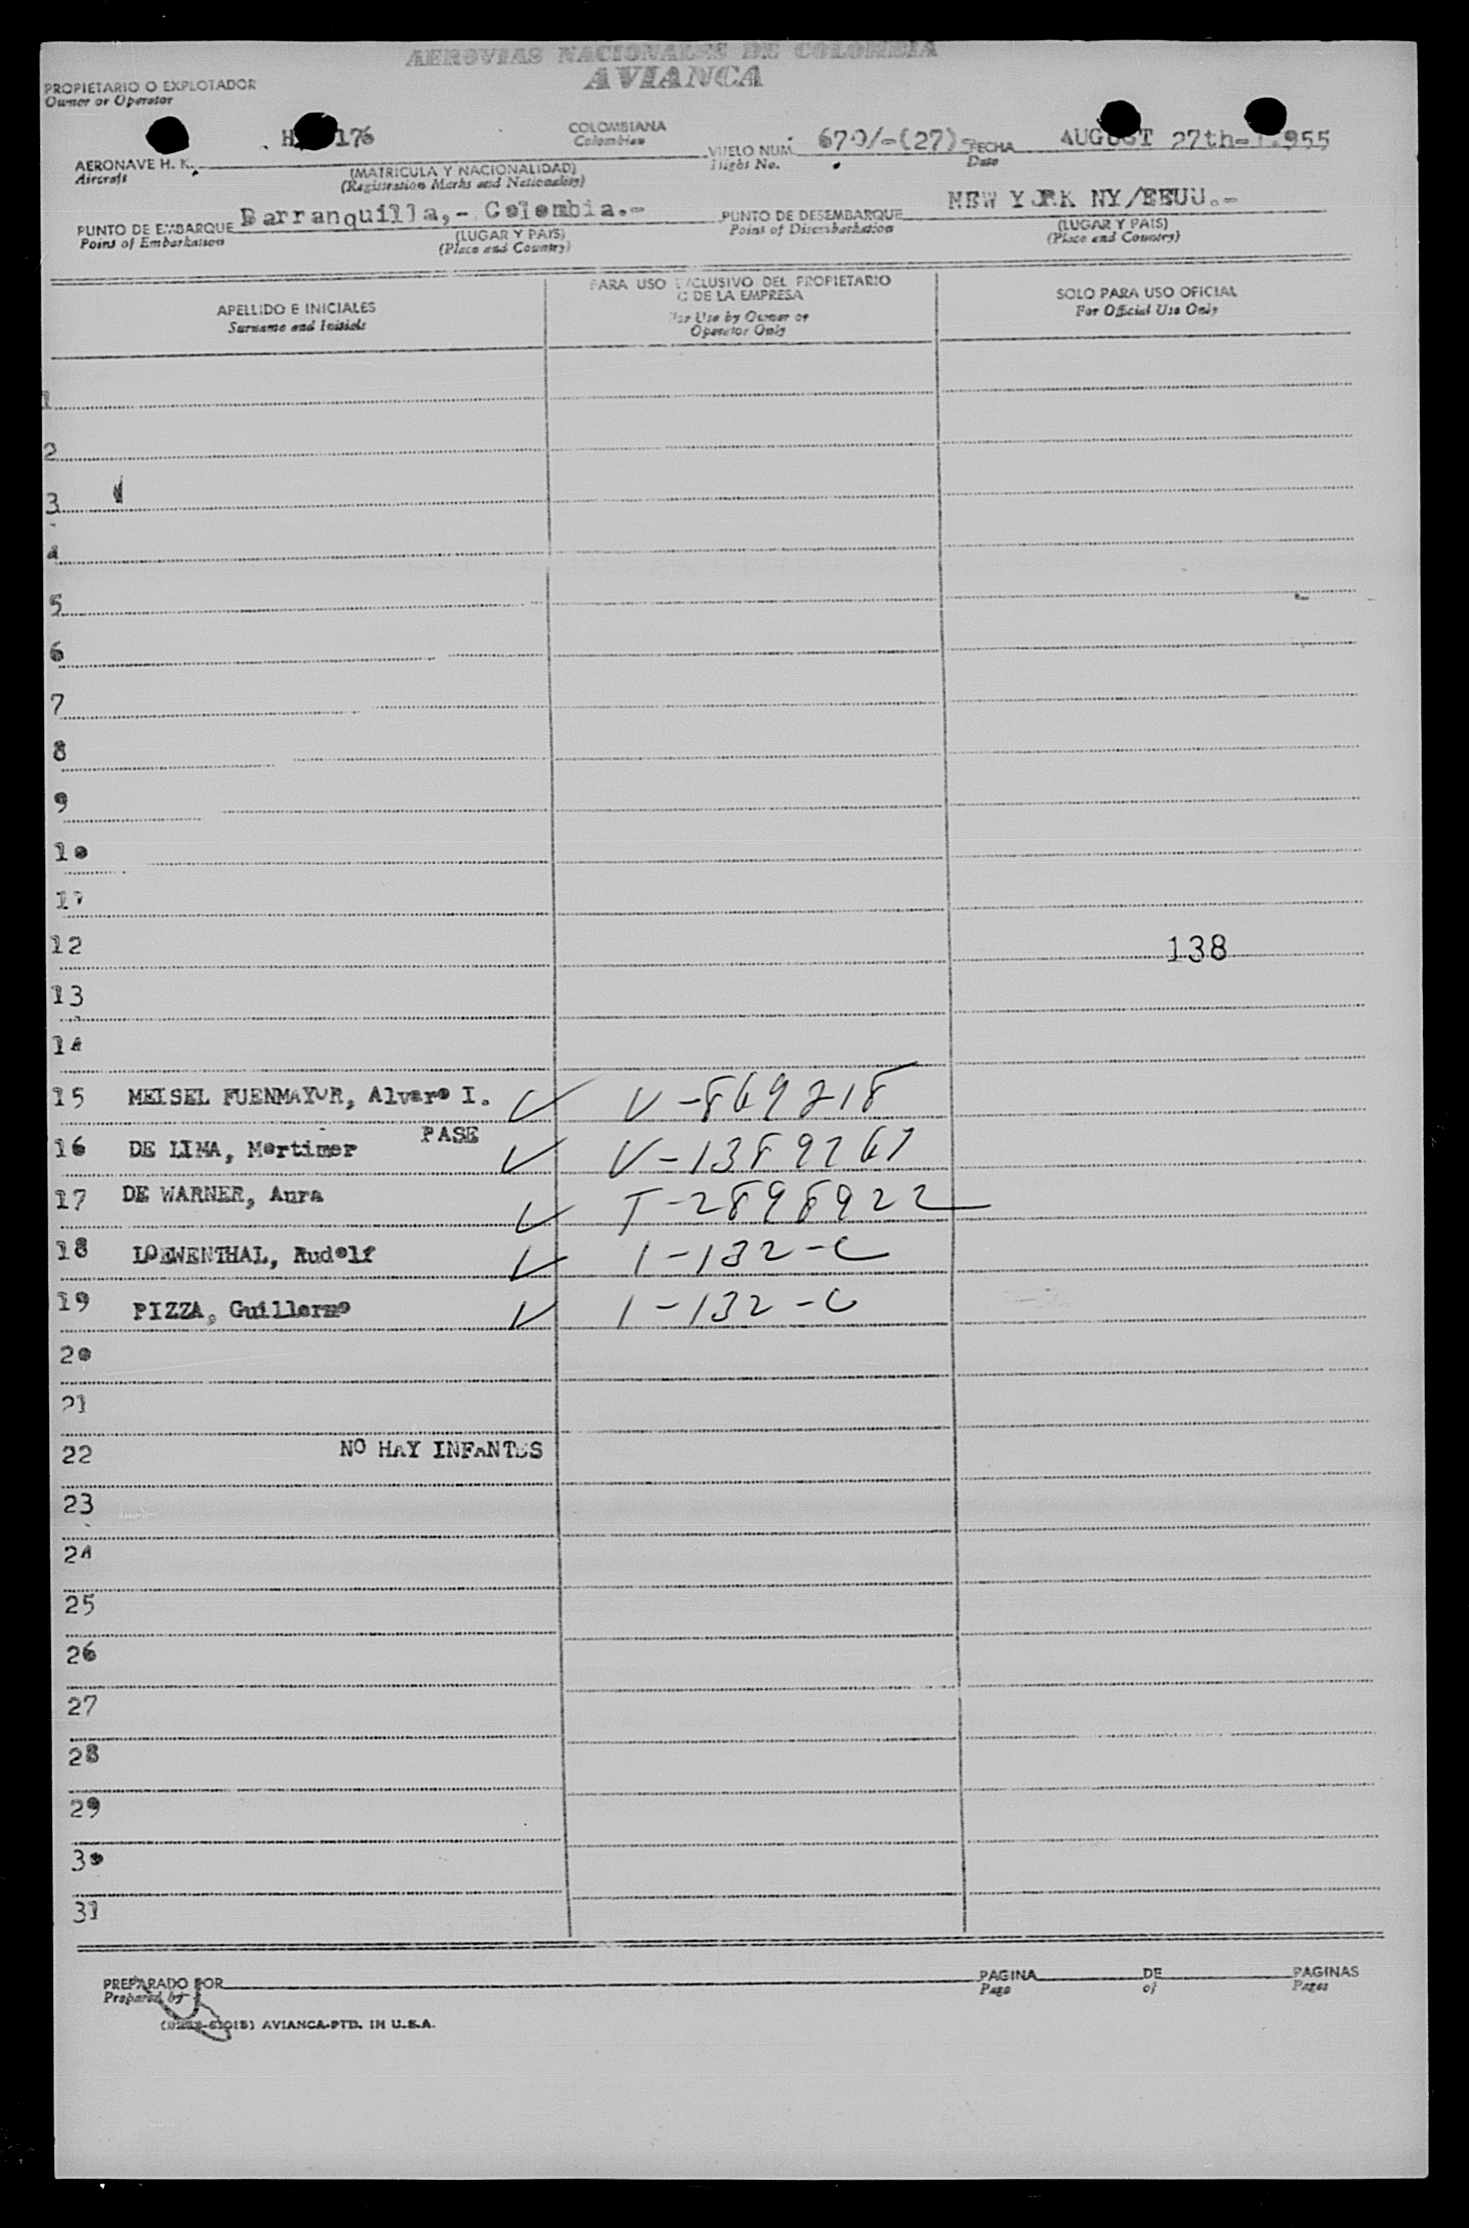 AEROVIAS NACIONALES DE COLOMBIA
AVIANCA
PROPIETARIO O EXPLOTADOR
Owner or Operator
AERONAVE H. K. 176
Aircraft
(MATRICULA Y NACIONALIDAD)
(Registration Marks and Nationality)
COLOMBIANA
Colombian
VUELO NUM. 670/-(27)-
Flight No.
FECHA AUGUST 27th-1.955
Date
PUNTO DE EMBARQUE Barranquilla,- Colombia.-
Point of Embarkation
(LUGAR Y PAIS)
(Place and Country)
PUNTO DE DESEMBARQUE NEW YORK NY/EEUU.-
Point of Disembarkation
(LUGAR Y PAIS)
(Place and Country)
APELLIDO E INICIALES
Surname and Initials
PARA USO EXCLUSIVO DEL PROPIETARIO
O DE LA EMPRESA
For Use by Owner or
Operator Only
SOLO PARA USO OFICIAL
For Official Use Only
1
2
3
4
5
6
7
8
9
10
11
12 138
13
14
15 MEISEL FUENMAYOR, Alvaro I. ✓ V-869218
16 DE LIMA, Mortimer PASE ✓ V-1389267
17 DE WARNER, Aura ✓ T-2898922
18 LOEWENTHAL, Rudolf ✓ 1-132-C
19 PIZZA, Guillermo ✓ 1-132-C
20
21
22 NO HAY INFANTES
23
24
25
26
27
28
29
30
31
PREPARADO POR
Prepared by
PAGINA DE PAGINAS
Page of Pages
AVIANCA-PTD. IN U.S.A.